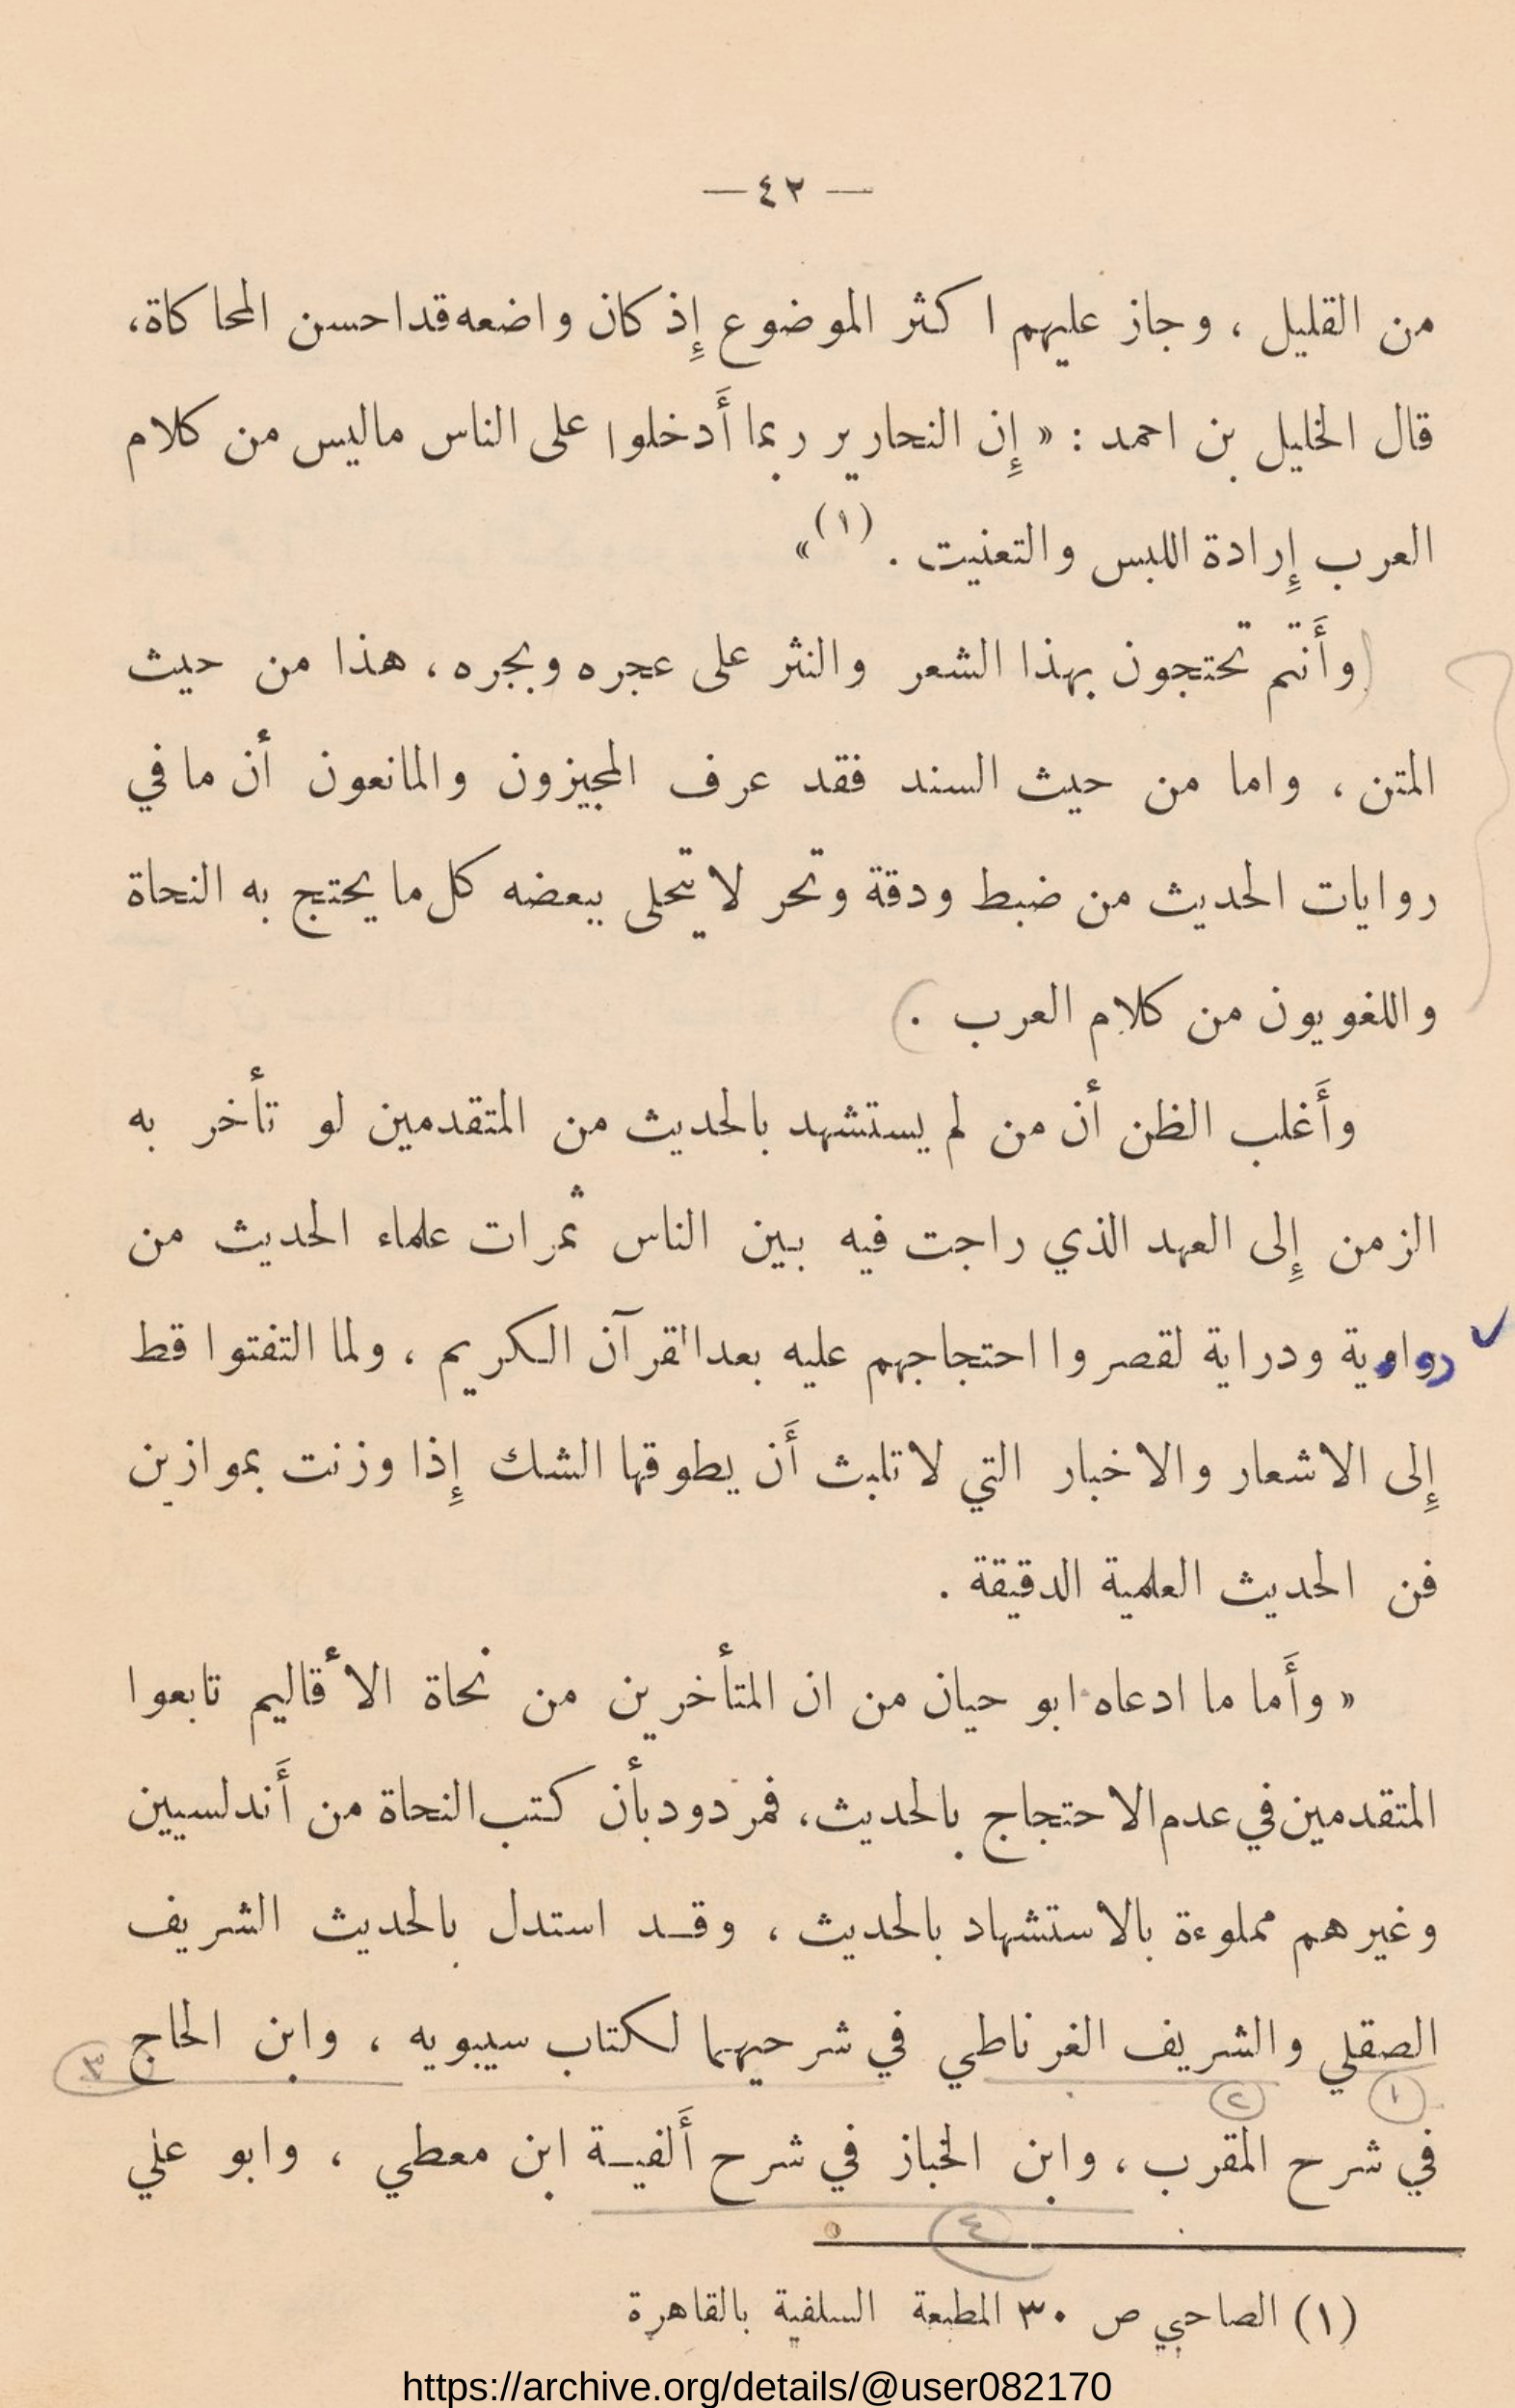 — ٤٢ —
من القليل ، وجاز عليهم اكثر الموضوع إِذ كان واضعه قد احسن المحاكاة،
قال الخليل بن احمد : « إِن النحارير ربما أَدخلوا على الناس ماليس من كلام
العرب إِرادة اللبس والتعنيت . (١)»
(وأَنتم تحتجون بهذا الشعر والنثر على عجره وبجره ، هذا من حيث
المتن ، واما من حيث السند فقد عرف المجيزون والمانعون أن ما في
روايات الحديث من ضبط ودقة وتحر لا يتحلى ببعضه كل ما يحتج به النحاة
واللغويون من كلام العرب . )
وأَغلب الظن أن من لم يستشهد بالحديث من المتقدمين لو تأخر به
الزمن إِلى العهد الذي راجت فيه بين الناس ثمرات علماء الحديث من
رواية ودراية لقصروا احتجاجهم عليه بعد القرآن الكريم ، ولما التفتوا قط
إِلى الاشعار والاخبار التي لا تلبث أَن يطوقها الشك إِذا وزنت بموازين
فن الحديث العلمية الدقيقة .
« وأَما ما ادعاه ابو حيان من ان المتأخرين من نحاة الأقاليم تابعوا
المتقدمين في عدم الاحتجاج بالحديث، فمردود بأن كتب النحاة من أَندلسيين
وغيرهم مملوءة بالاستشهاد بالحديث ، وقد استدل بالحديث الشريف
الصقلي والشريف الغرناطي في شرحيهما لكتاب سيبويه ، وابن الحاج
١ ٢ ٣
في شرح المقرب ، وابن الخباز في شرح أَلفية ابن معطي ، وابو علي
٤
(١) الصاحبي ص ٣٠ المطبعة السلفية بالقاهرة
https://archive.org/details/@user082170